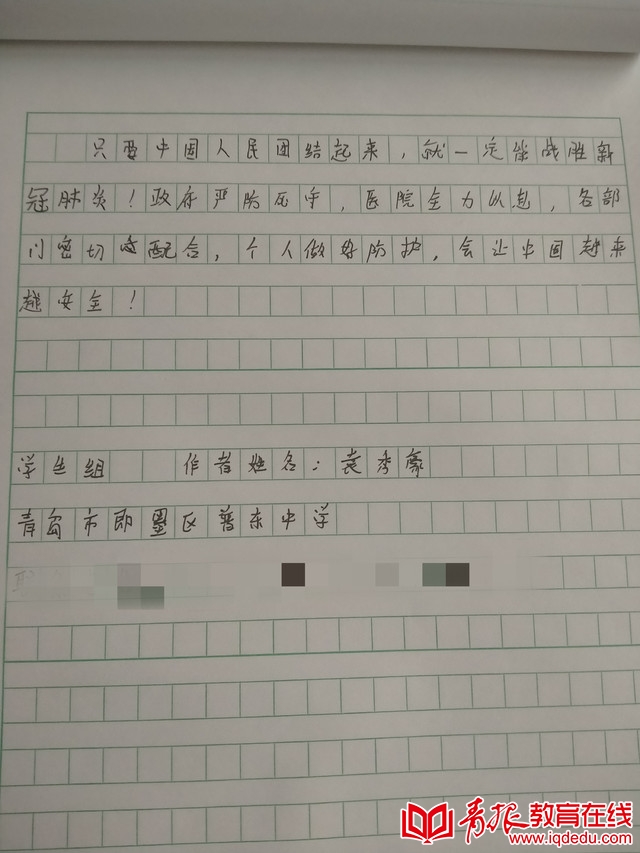 只要中国人民团结起来，就一定能战胜新
冠肺炎！政府严防死守，医院全力以赴，各部
门密切配合，个人做好防护，会让中国越来
越安全！
学生组 作者姓名：袁秀豪
青岛市即墨区普东中学
青报教育在线
www.iqdedu.com